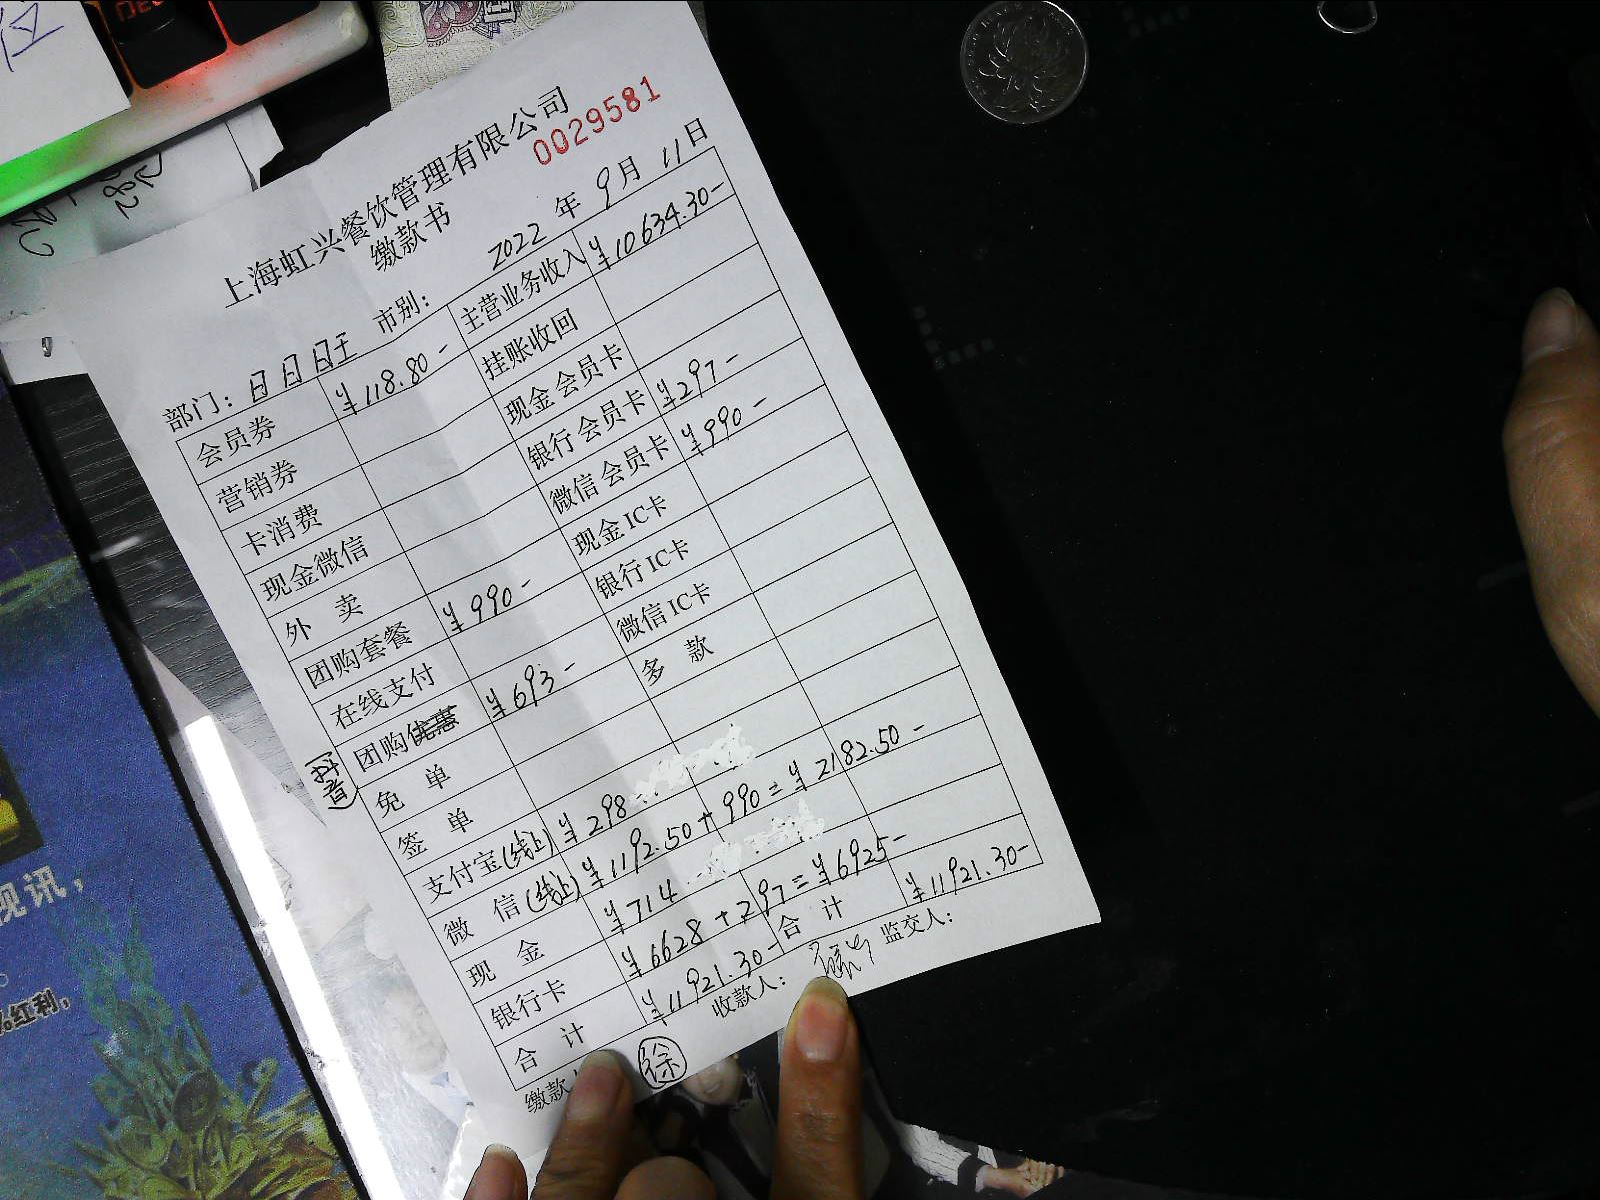 上海虹兴餐饮管理有限公司
缴款书
0029581
部门：日日日王 市别： 2022年9月11日
会员券 ¥118.80- 主营业务收入 ¥10634.30-
营销券 挂账收回
卡消费 现金会员卡
现金微信 银行会员卡 ¥297-
外卖 微信会员卡 ¥990-
团购套餐 ¥990- 现金IC卡
在线支付 银行IC卡
团购 ¥693- 微信IC卡
(抖音)
免单 多款
签单
支付宝(线上) ¥298
微信(线上) ¥1192.50+990=¥2182.50-
现金 ¥714
银行卡 ¥6628+297=¥6925-
合计 ¥11921.30- 合计 ¥11921.30-
缴款 徐 收款人： 监交人：
视讯，
红利，